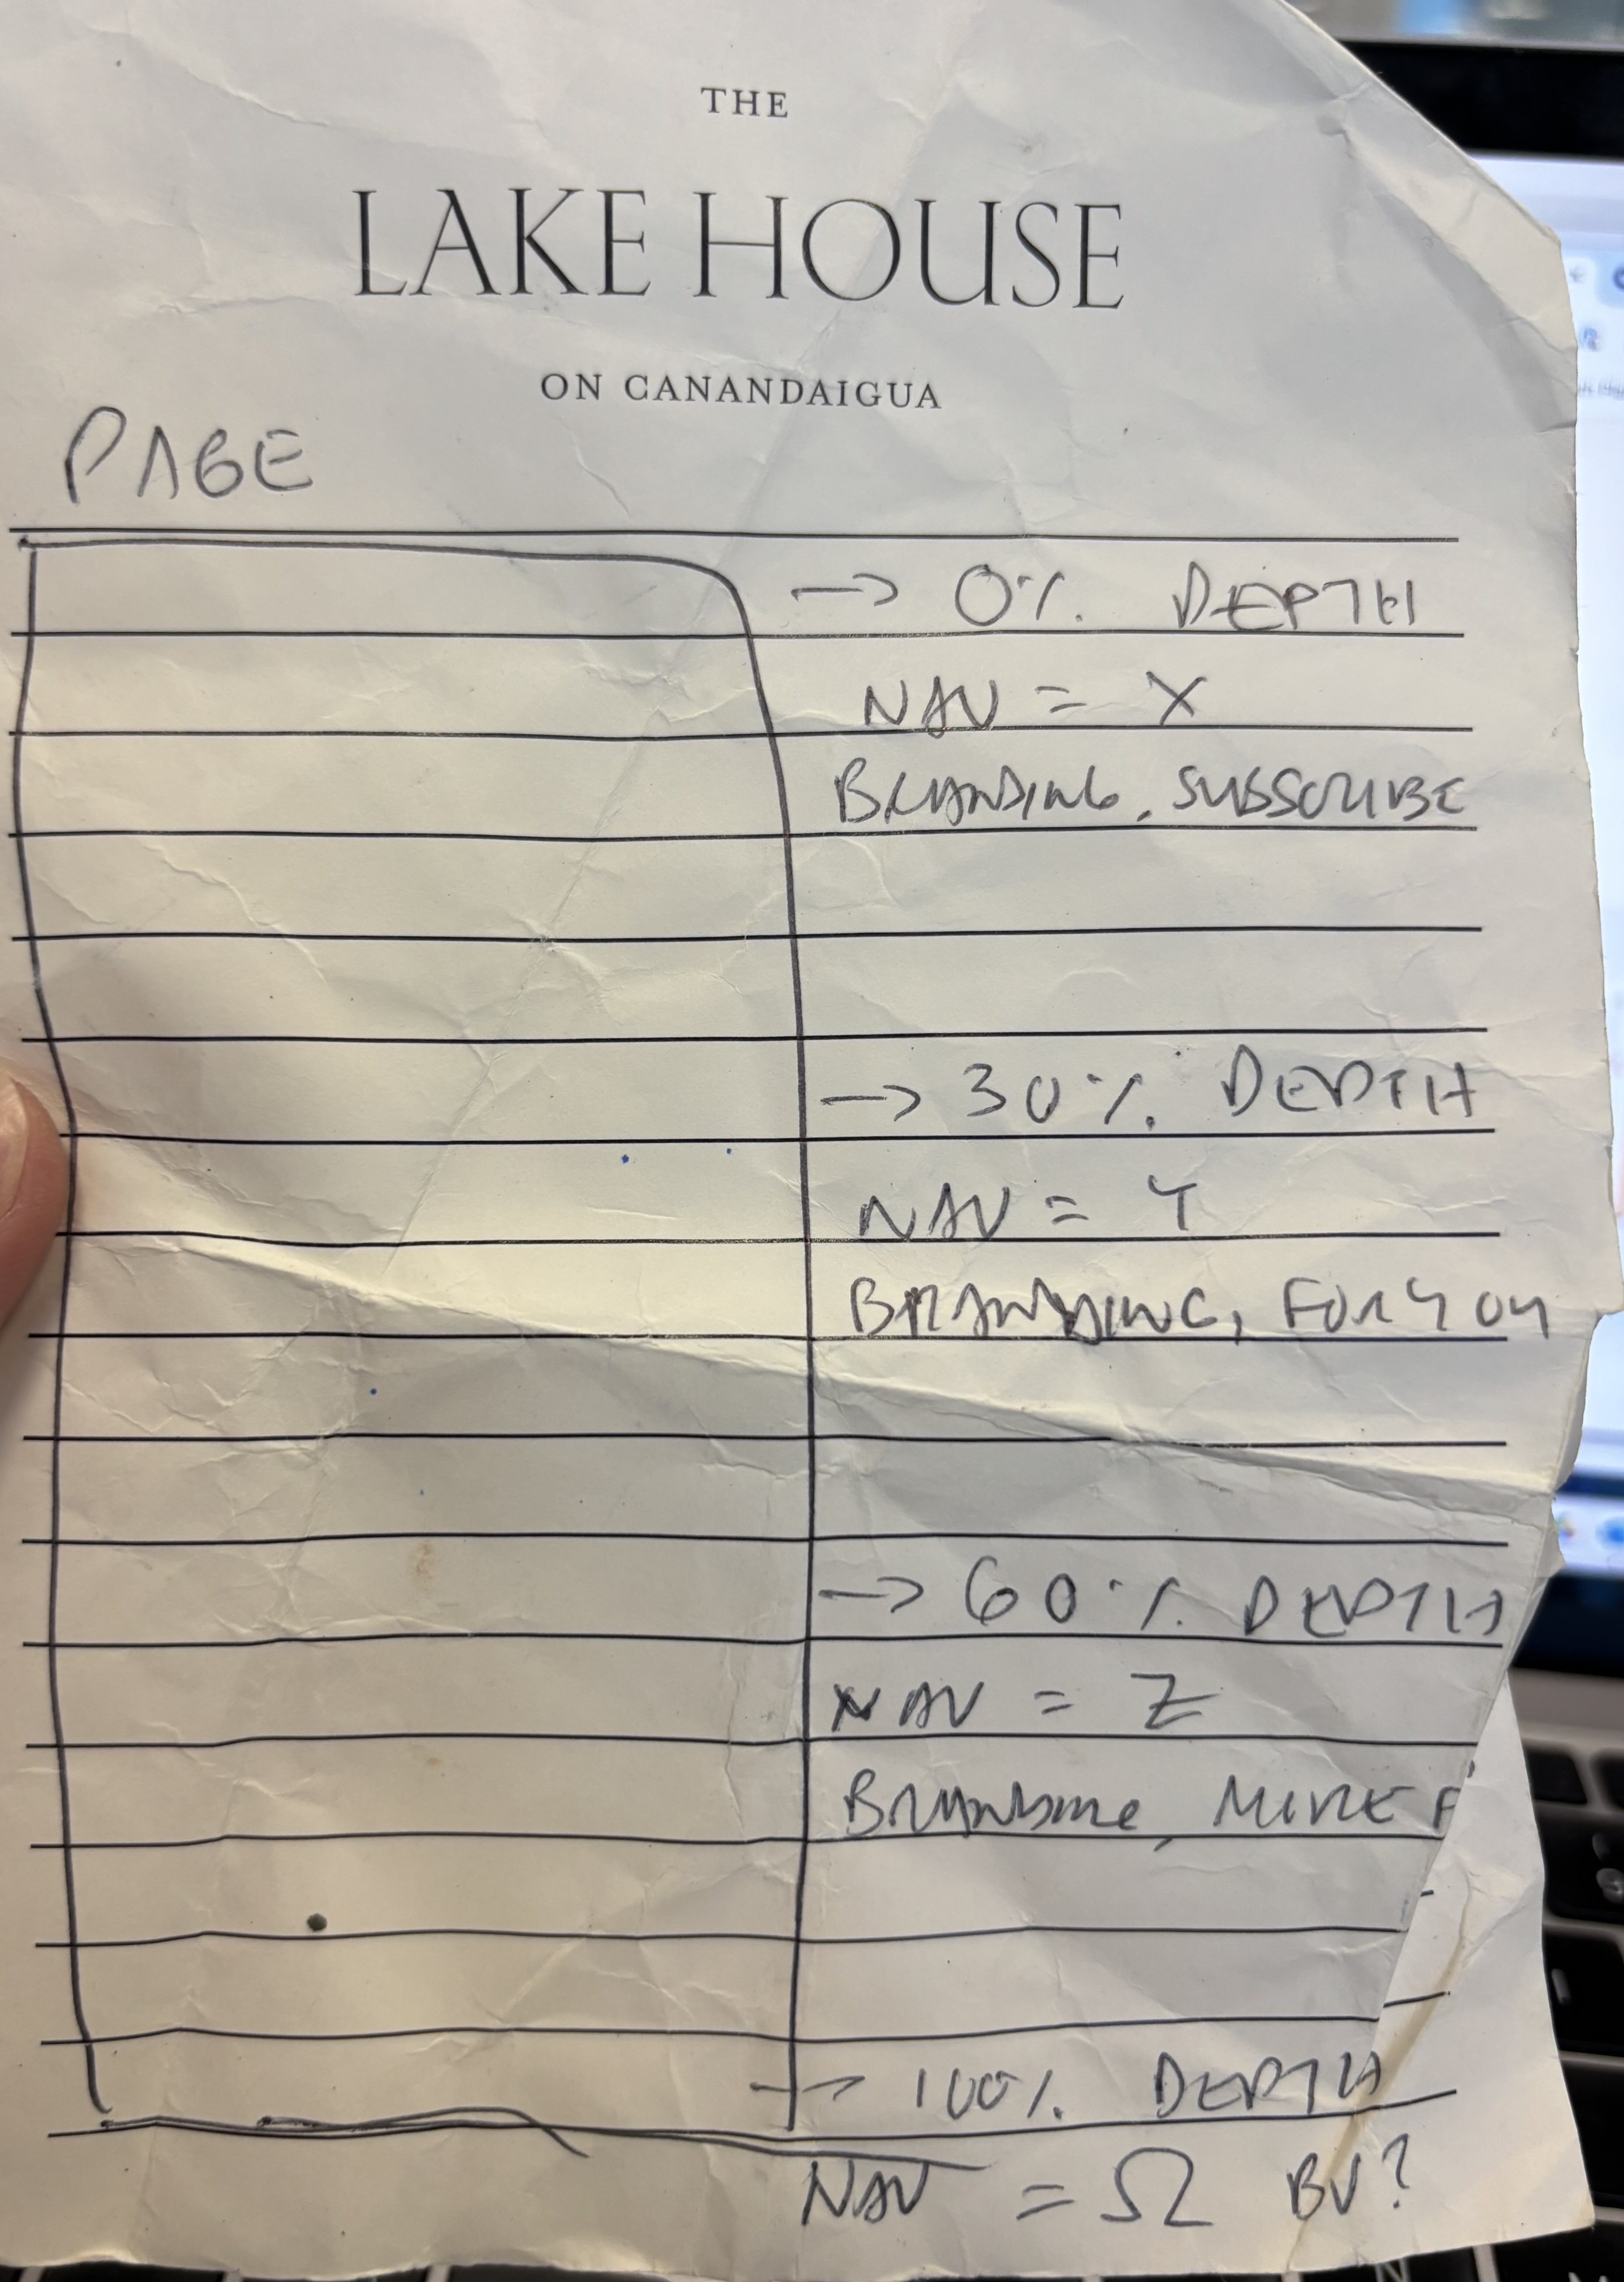 THE
LAKE HOUSE
ON CANANDAIGUA
PAGE
→ 0% DEPTH
NAV = X
BRANDING, SUBSCRIBE
→ 30% DEPTH
NAV = Y
BRANDING, FOR YOU
→ 60% DEPTH
NAV = Z
BRANDING, MORE F
→ 100% DEPTH
NAV = Ω BV?